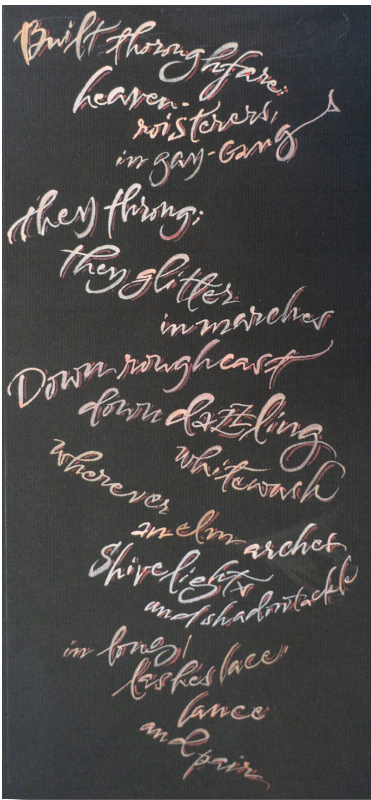 Built thoroughfare:
heaven-
roisterers,
in gay-Gang
they throng;
they glitter
in marches
Down roughcast
down dazzling
whitewash
wherever
an elm
arches
Shivelights
and shadowtackle
in long
lashes lace
lance
and pair